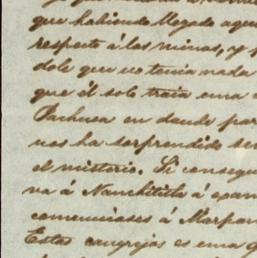 que habiendo llegado aqu
respecto á las minas, y p
dole que no tenia nada
que él solo traia una
Pachuca en donde par
nos ha sorprendido
el misterio. Si consegu
va á Nanchititla á exam
comenciases á
Estos cangrejos es una